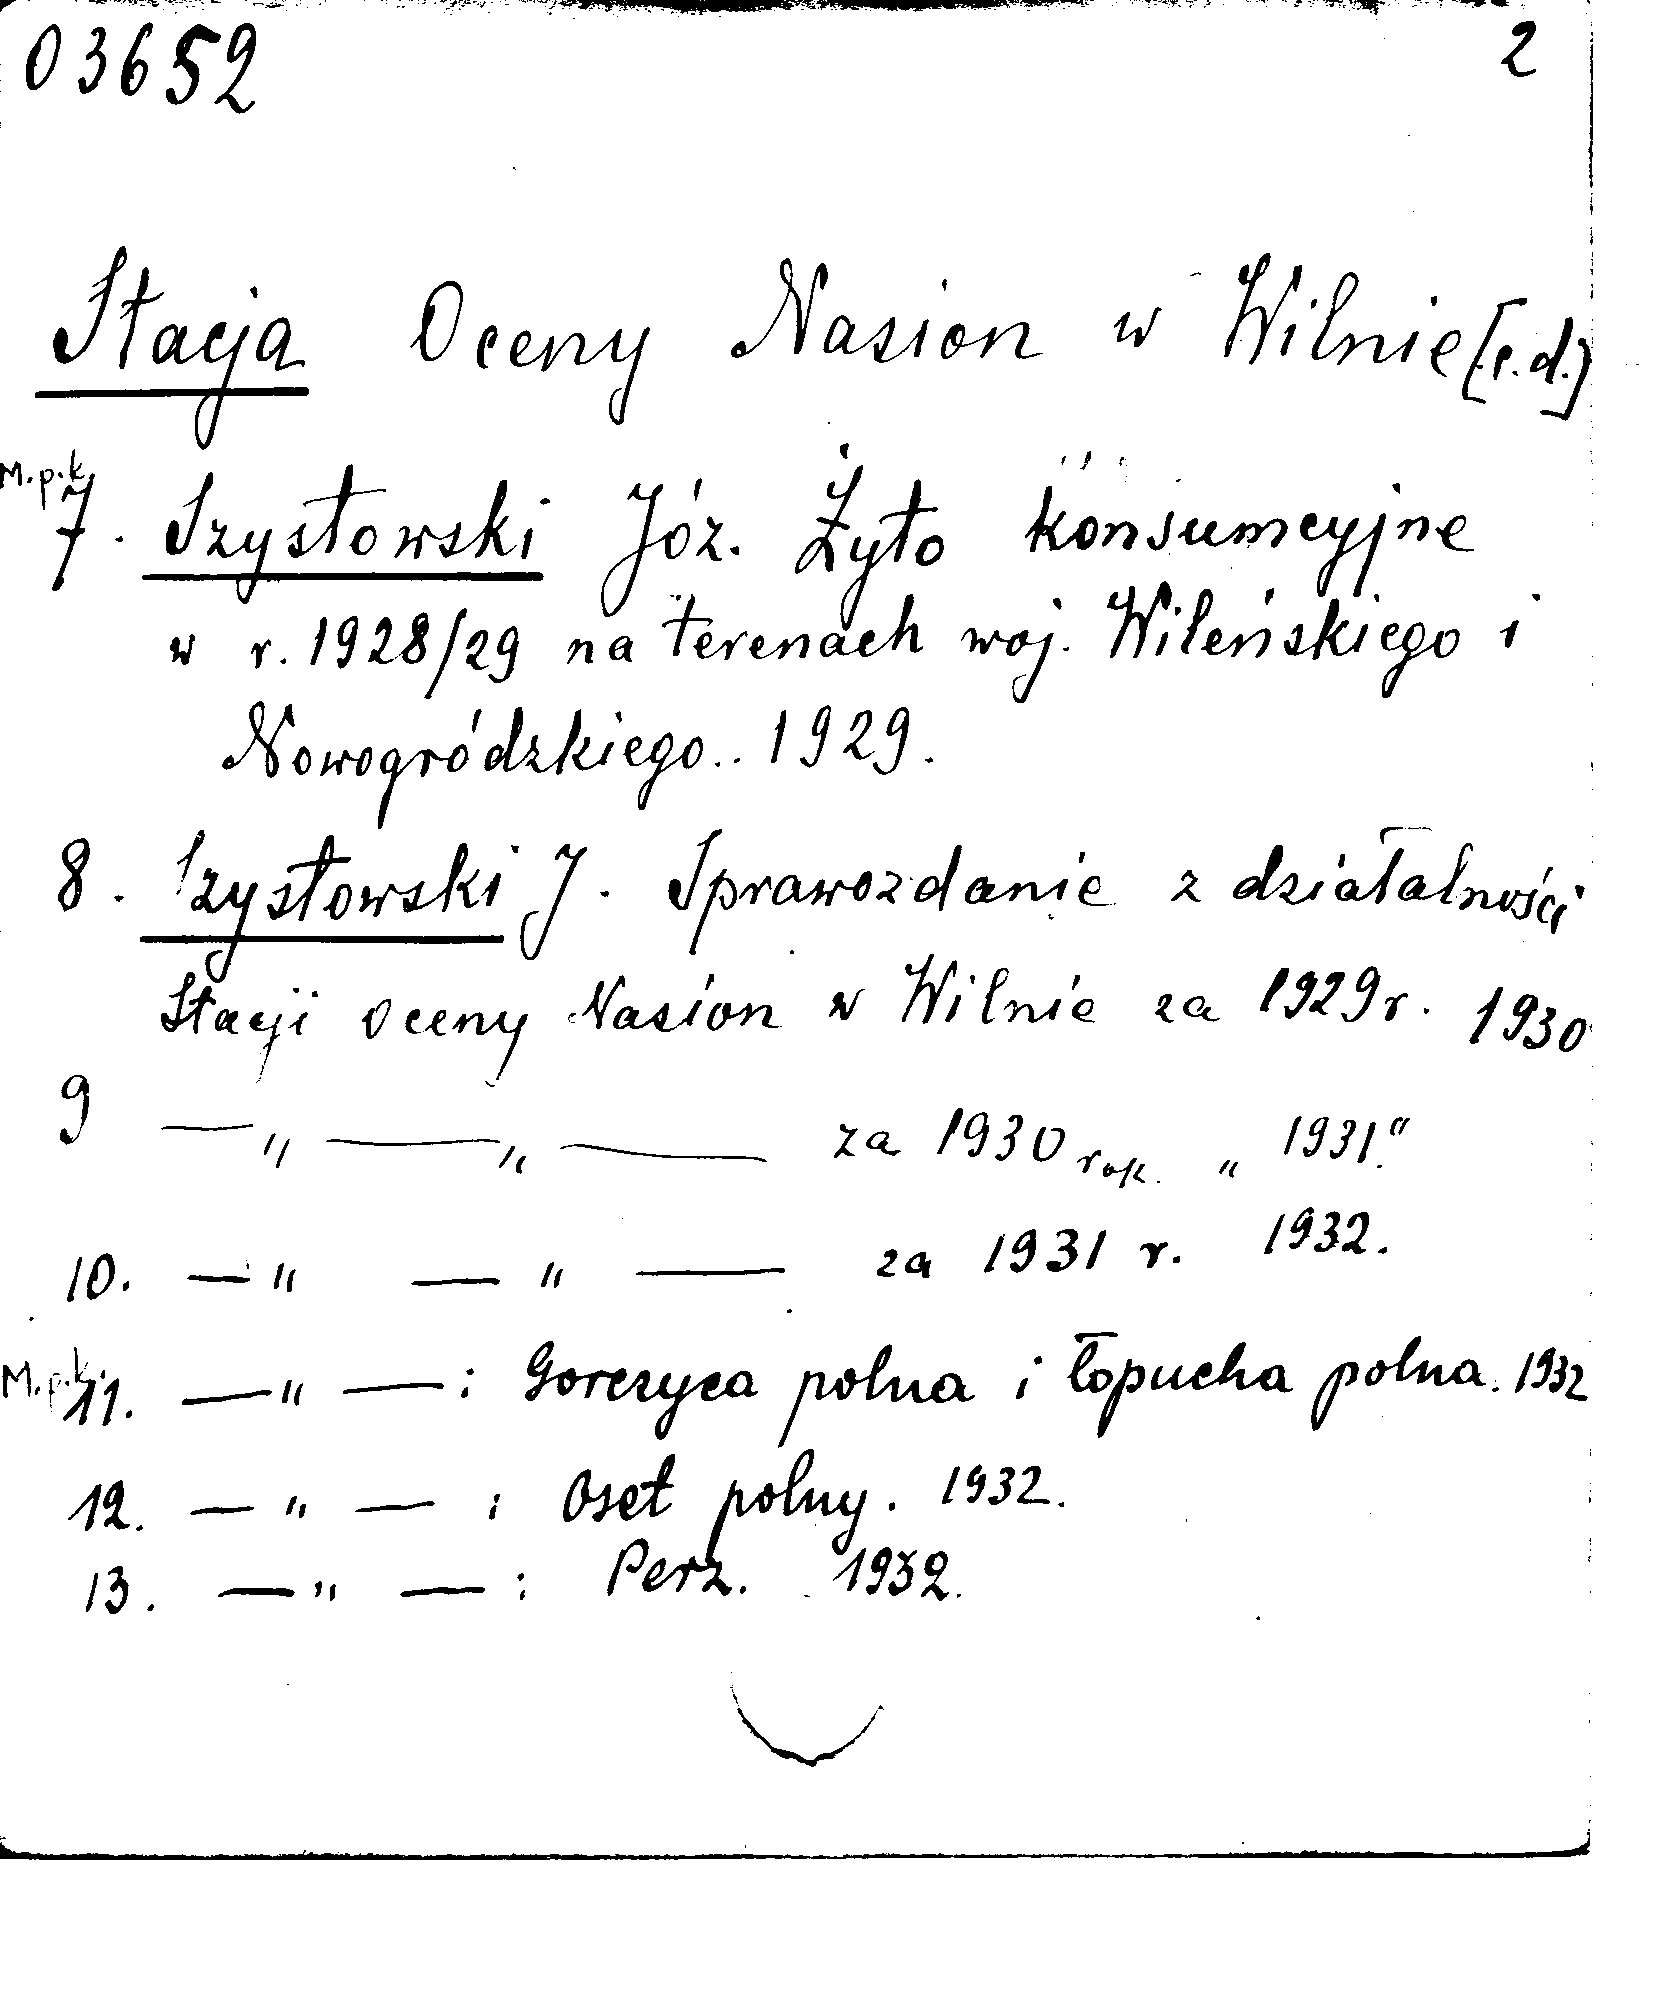 03652 2
Stacja Oceny Nasion w Wilnie [c.d.]
M.p.k
7. Szysłowski Józ. Żyto konsumcyjne
w r. 1928/29 na terenach woj. Wileńskiego i
Nowogródzkiego.. 1929.
8. Szysłowski J. Sprawozdanie z działalności
Stacji Oceny Nasion w Wilnie za 1929 r. 1930
9 — " — " — za 1930 rok. " 1931."
10. — " — " — za 1931 r. 1932.
M.p.k.
11. — " — : Gorczyca polna i łopucha polna. 1932
12. — " — : Oset polny. 1932.
13. — " — : Perz. 1932.